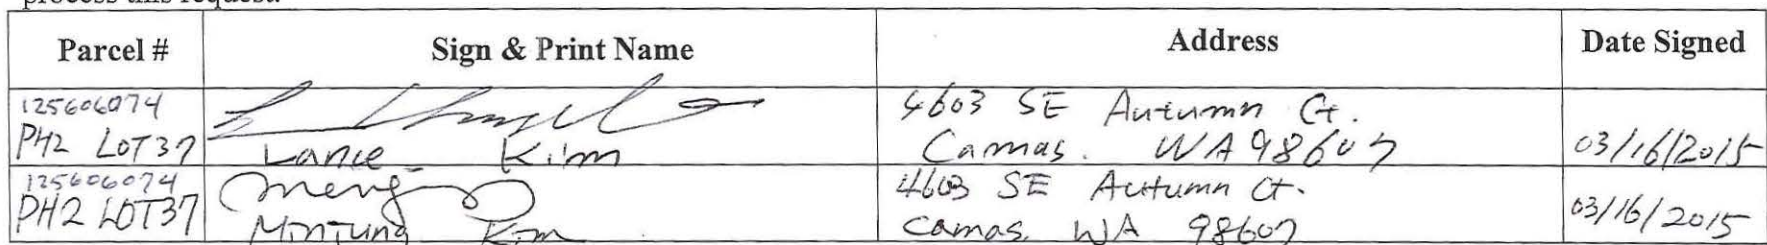 process this request.
Parcel # Sign & Print Name Address Date Signed
125606074
PH2 LOT37
Lance Kim
4603 SE Autumn Ct.
Camas. WA 98607
03/16/2015
125606074
PH2 LOT37
Minjung Kim
4603 SE Autumn Ct.
Camas. WA 98607
03/16/2015